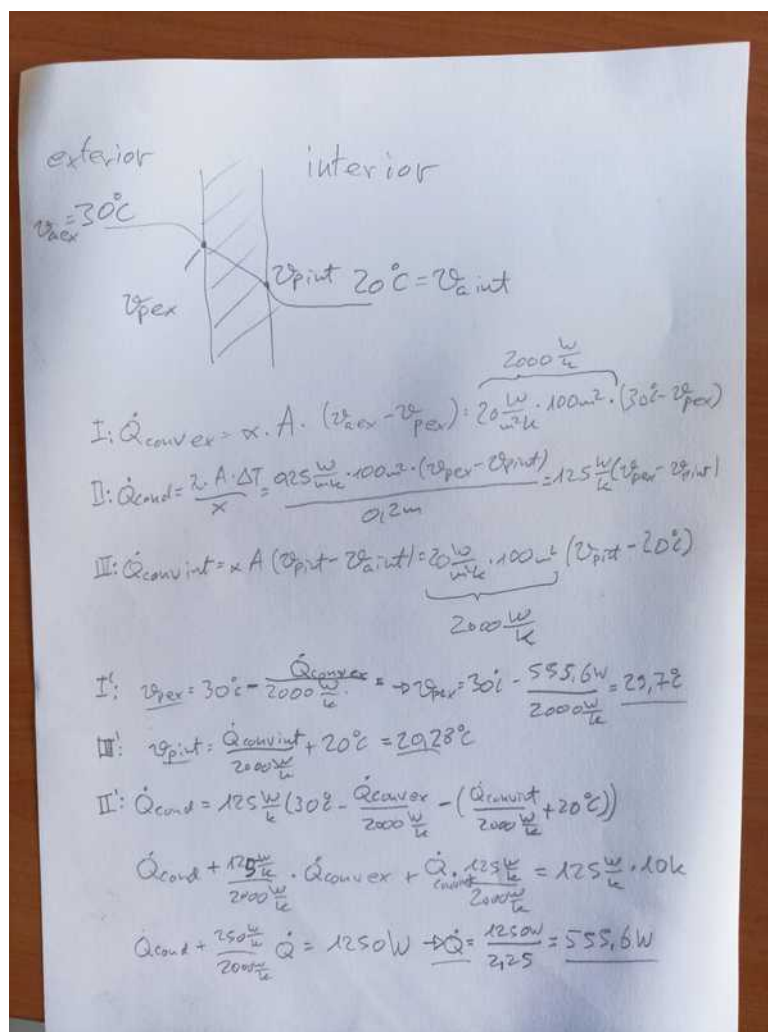 exterior
interior
ϑaex=30°C
ϑpex
ϑpint 20°C=ϑa int
2000 W/K
I: Q̇conv ex = α · A · (ϑaex - ϑpex) = 20 W/m²K · 100m² · (30°C - ϑpex)
II: Q̇cond = λ · A · ΔT / x = 0,25 W/mK · 100m² · (ϑpex - ϑpint) / 0,2m = 125 W/K (ϑpex - ϑpint)
III: Q̇conv int = α A (ϑpint - ϑa int) = 20 W/m²K · 100m² (ϑpint - 20°C)
2000 W/K
I': ϑpex = 30°C - Q̇convex / 2000 W/K = → ϑpex = 30°C - 555,6W / 2000 W/K = 29,7°C
III': ϑpint = Q̇convint / 2000 W/K + 20°C = 20,28°C
II': Q̇cond = 125 W/K (30°C - Q̇convex / 2000 W/K - (Q̇convint / 2000 W/K + 20°C))
Q̇cond + 125 W/K / 2000 W/K · Q̇convex + Q̇convint · 125 W/K / 2000 W/K = 125 W/K · 10K
Q̇cond + 250 W/K / 2000 W/K Q̇ = 1250W → Q̇ = 1250W / 2,25 = 555,6W